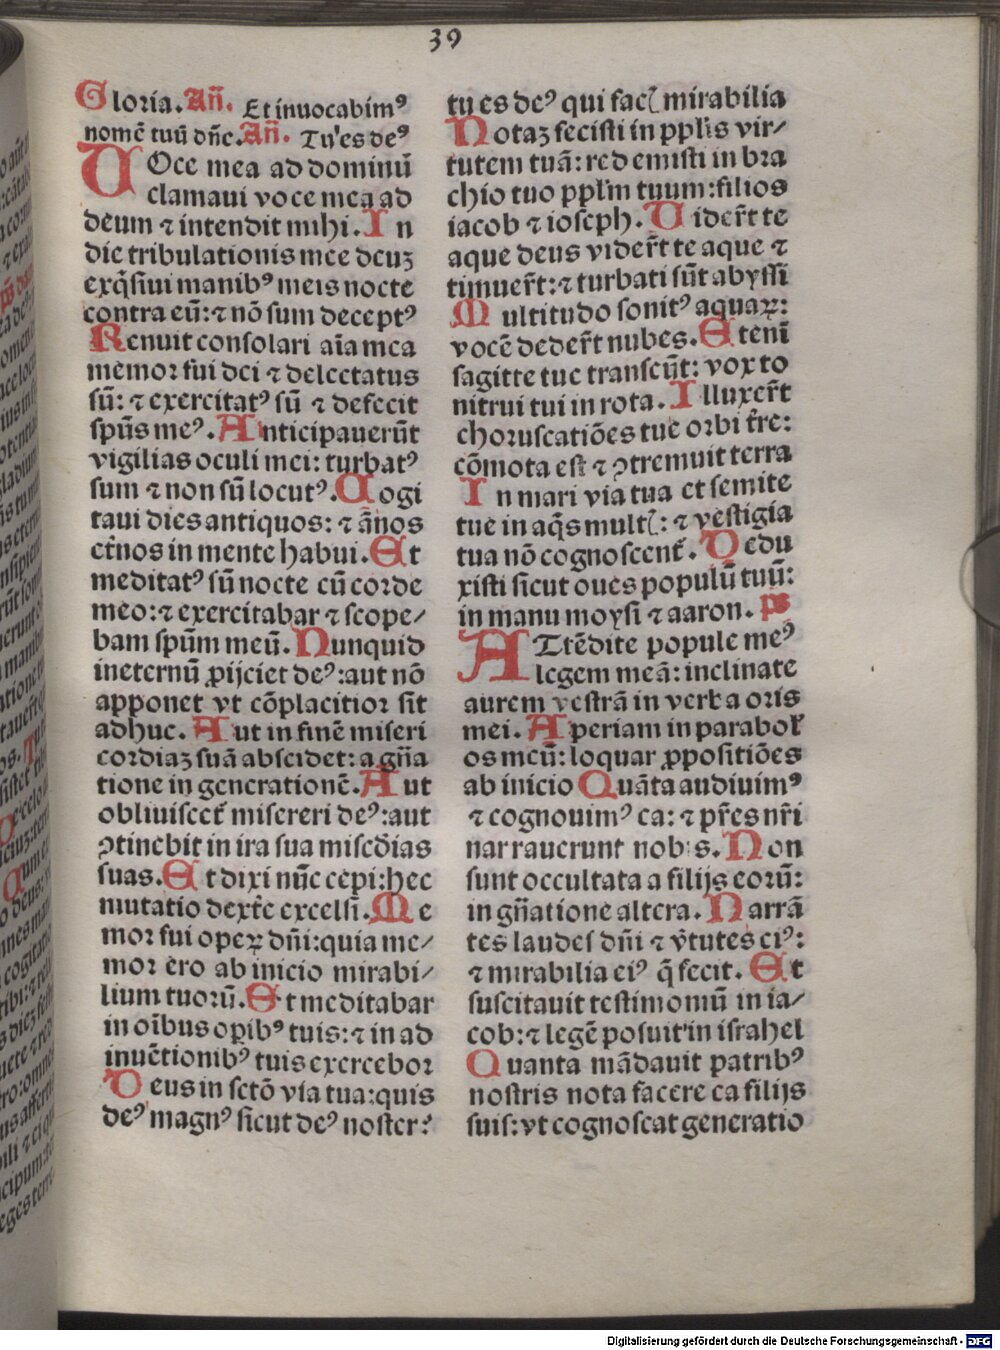 39
Gloria. Añ. Et inuocabimꝰ
nomē tuū dñe. Añ. Tu es deꝰ
VOce mea ad dominū
clamaui voce mea ad
deum ⁊ intendit mihi. In
die tribulationis mee deuꝫ
exq̄siui manibꝰ meis nocte
contra eū: ⁊ nō sum deceptꝰ
Renuit consolari aīa mea
memor fui dei ⁊ delectatus
sū: ⁊ exercitatꝰ sū ⁊ defecit
spūs meꝰ. Anticipauerūt
vigilias oculi mei: turbatꝰ
sum ⁊ non sū locutꝰ. Cogi
taui dies antiquos: ⁊ ānos
et̄nos in mente habui. Et
meditatꝰ sū nocte cū corde
meo: ⁊ exercitabar ⁊ scope/
bam spūm meū. Nunquid
ineternū ꝓijciet deꝰ: aut nō
apponet vt cōplacitior sit
adhuc. Aut in finē miseri
cordiaꝫ suā abscidet: a gn̄a
tione in generationē. Aut
obliuiscet̄ misereri deꝰ: aut
ꝯtinebit in ira sua misc̄dias
suas. Et dixi nūc cepi: hec
mutatio dext̄e excelsi. Me
mor fui operꝝ dn̄i: quia me/
mor ero ab inicio mirabi/
lium tuorū. Et meditabar
in oībus oꝑibꝰ tuis: ⁊ in ad
inuētionibꝰ tuis exercebor
Deus in sctō via tua: quis
deꝰ magnꝰ sicut deꝰ noster:
tu es deꝰ qui facꝭ mirabilia
Notaꝫ fecisti in pplīs vir/
tutem tuā: redemisti in bra
chio tuo pplm̄ tuum: filios
iacob ⁊ ioseph. Vider̄t te
aque deus vider̄t te aque ⁊
timuer̄t: ⁊ turbati sūt abyssi
Multitudo sonitꝰ aquaꝝ:
vocē deder̄t nubes. Etenī
sagitte tue transeūt: vox to
nitrui tui in rota. Illuxer̄t
choruscatiōes tue orbi t̄re:
cōmota est ⁊ ꝯtremuit terra
In mari via tua et semite
tue in aq̄s multꝭ: ⁊ vestigia
tua nō cognoscent̄. Dedu
xisti sicut oues populū tuū:
in manu moysi ⁊ aaron. ps̄
ATtēdite popule meꝰ
legem meā: inclinate
aurem vestrā in verba oris
mei. Aperiam in parabol̄
os meū: loquar ꝓpositiōes
ab inicio Quāta audiuimꝰ
⁊ cognouimꝰ ea: ⁊ pr̄es nr̄i
narrauerunt nobis. Non
sunt occultata a filijs eorū:
in gn̄atione altera. Narrā
tes laudes dn̄i ⁊ v̄tutes eiꝰ:
⁊ mirabilia eiꝰ q̄ fecit. Et
suscitauit testimoniū in ia/
cob: ⁊ legē posuit in israhel
Quanta mādauit patribꝰ
nostris nota facere ea filijs
suis: vt cognoscat generatio
Digitalisierung gefördert durch die Deutsche Forschungsgemeinschaft - DFG